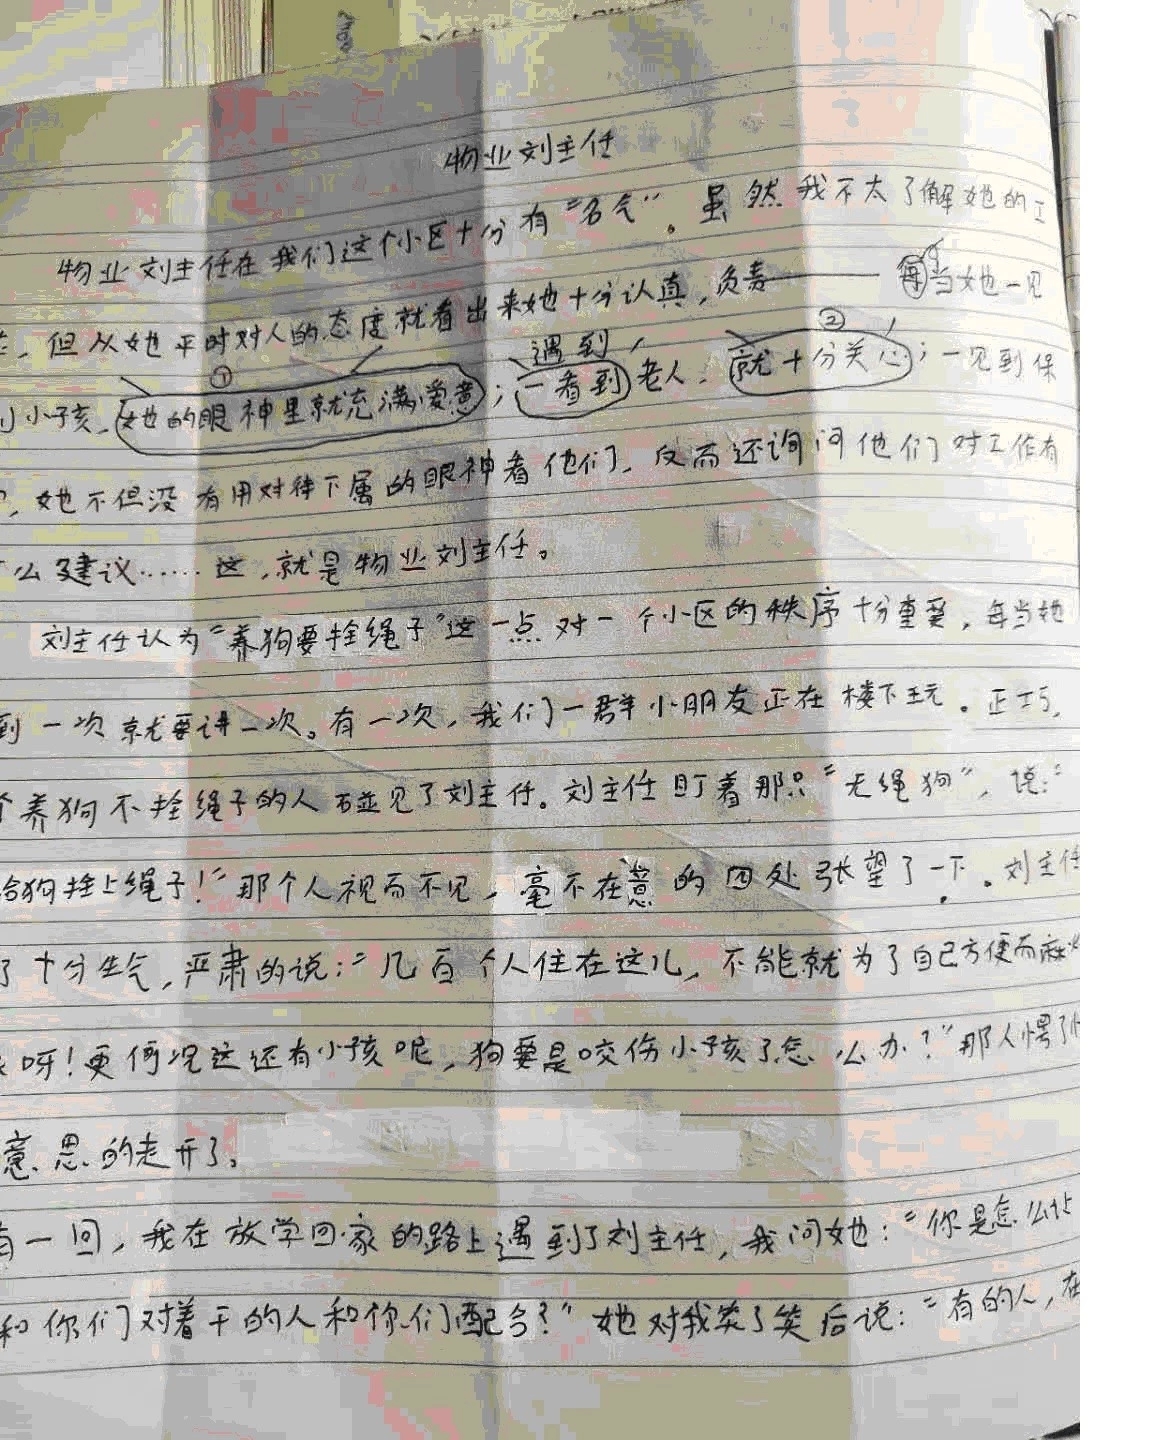 物业刘主任
物业刘主任在我们这个小区十分有“名气”。虽然我不太了解她的工
，但从她平时对人的态度就看出来她十分认真，负责 每当她一见
遇到 ②
①
小孩，她的眼神里就充满爱意；一看到老人，就十分关心；一见到保
，她不但没有用对待下属的眼神看他们，反而还询问他们对工作有
么建议……这，就是物业刘主任。
刘主任认为“养狗要拴绳子”这一点对一个小区的秩序十分重要，每当她
到一次就要讲一次。有一次，我们一群小朋友正在楼下玩。正巧，
个养狗不拴绳子的人碰见了刘主任。刘主任盯着那只“无绳狗”，说：“
给狗拴上绳子！”那个人视而不见，毫不在意的四处张望了一下。刘主任
了十分生气，严肃的说：“几百个人住在这儿，不能就为了自己方便而麻
呀！更何况这还有小孩呢，狗要是咬伤小孩了怎么办？”那人愣了
意思的走开了。
有一回，我在放学回家的路上遇到了刘主任，我问她：“你是怎么让
和你们对着干的人和你们配合？”她对我笑了笑后说：“有的人，在